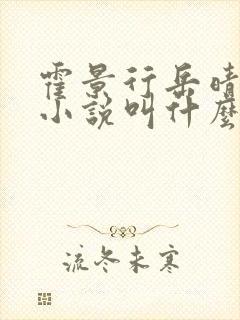 霍景行岳晴
小说叫什麼
流冬未寒